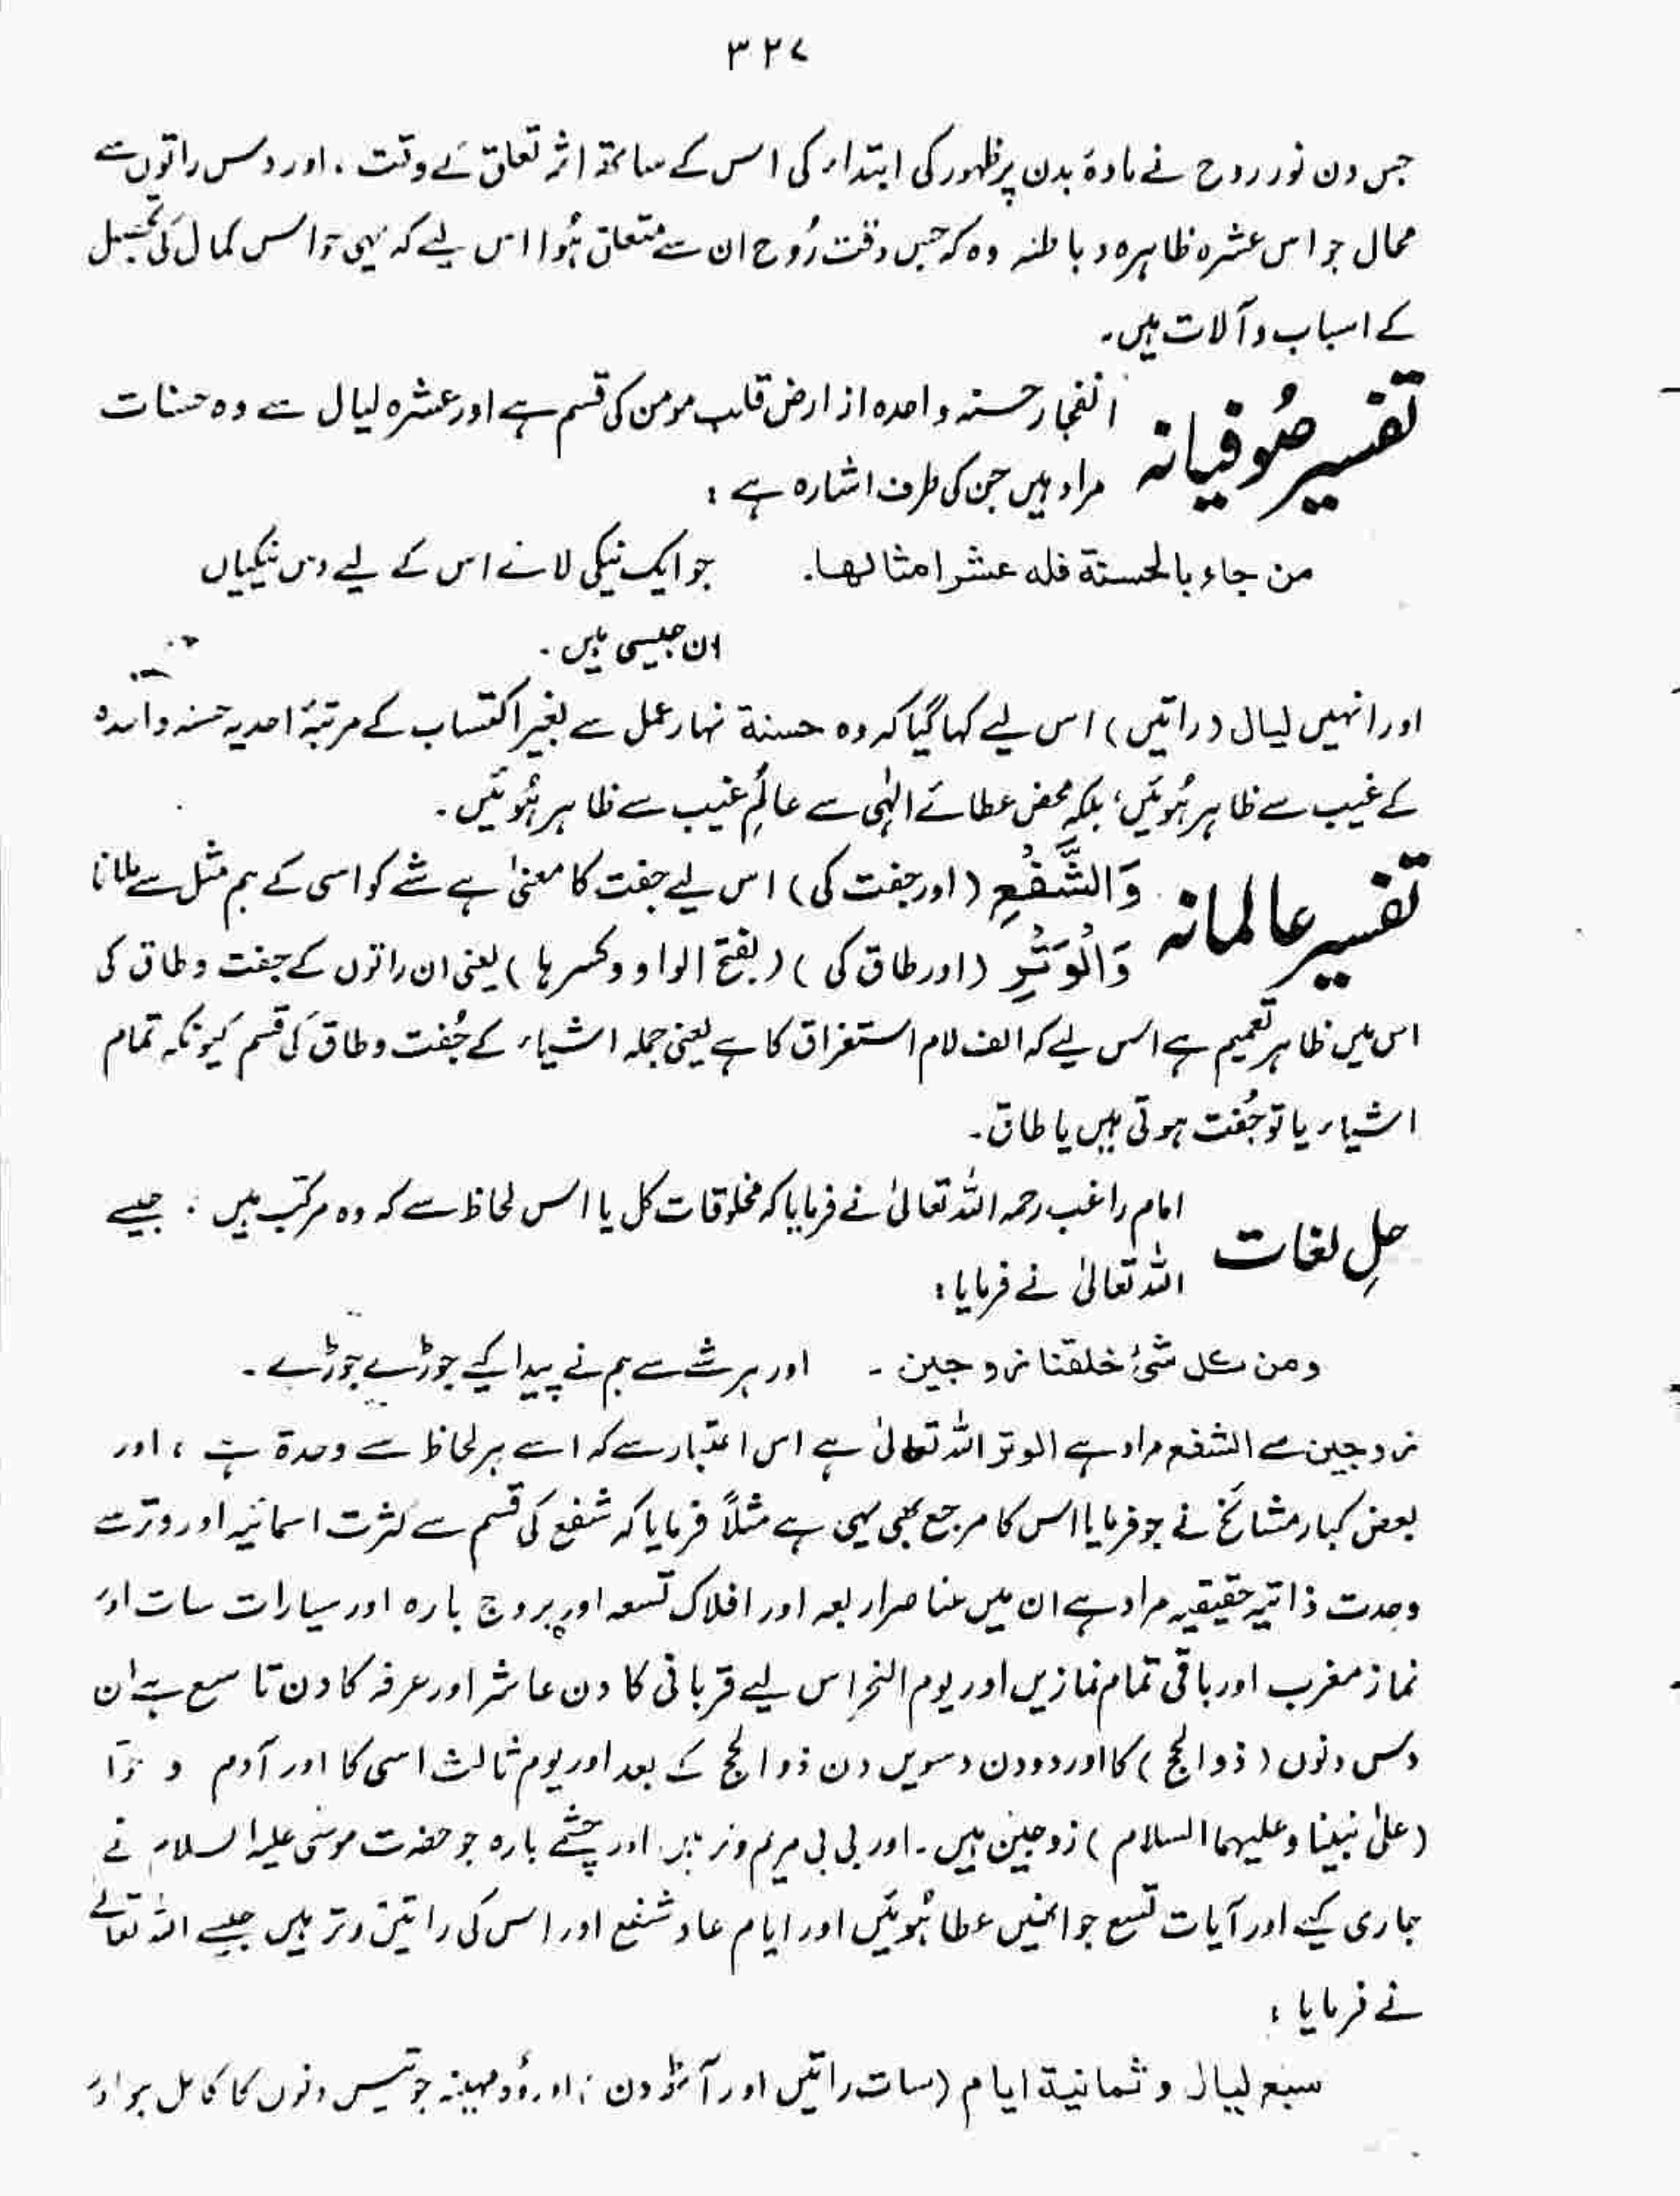 ۳۲۷
جس دن نور روح نے مادۂ بدن پر ظہور کی ابتداء کی اس کے ساتھ اثر تعلق کے وقت ، اور دس راتوں سے
محال جو اس عشرہ ظاہرہ و باطنہ وہ کہ جس وقت رُوح ان سے متعلق ہُوا اس لیے کہ یہی حواس کمال کی تحصیل
کے اسباب و آلات ہیں۔
تفسیر صُوفیانہ انفجار حسنہ واحدہ از ارض قلب مومن کی قسم ہے اور عشرہ لیال سے وہ حسنات
مراد ہیں جن کی طرف اشارہ ہے :
من جاء بالحسنة فله عشر امثالها۔ جو ایک نیکی لائے اس کے لیے دس نیکیاں
ان جیسی ہیں ۔
اور انہیں لیال (راتیں) اس لیے کہا گیا کہ وہ حسنة نہار عمل سے بغیر اکتساب کے مرتبۂ احدیہ حسنہ واحدہ
کے غیب سے ظاہر ہُوئیں؛ بلکہ محض عطائے الٰہی سے عالمِ غیب سے ظاہر ہُوئیں ۔
تفسیر عالمانہ وَالشَّفْعِ (اور جفت کی) اس لیے جفت کا معنیٰ ہے شے کو اسی کے ہم مثل سے ملانا
وَالْوَتْرِ (اور طاق کی) (بفتح الواو وکسرہا) یعنی ان راتوں کے جفت و طاق کی
اس میں ظاہر تعمیم ہے اس لیے کہ الف لام استغراق کا ہے یعنی جملہ اشیاء کے جُفت و طاق کی قسم کیونکہ تمام
اشیاء یا تو جُفت ہوتی ہیں یا طاق۔
حلِ لغات امام راغب رحمہ اللہ تعالیٰ نے فرمایا کہ مخلوقات کل یا اس لحاظ سے کہ وہ مرکب ہیں : جیسے
اللہ تعالیٰ نے فرمایا :
ومن كل شئ خلقنا زوجين ۔ اور ہر شے سے ہم نے پیدا کیے جوڑے جوڑے ۔
زوجین سے الشفع مراد ہے الوتر اللہ تعالیٰ ہے اس اعتبار سے کہ اسے ہر لحاظ سے وحدۃ ہے ، اور
بعض کبار مشائخ نے جو فرمایا اس کا مرجع بھی یہی ہے مثلاً فرمایا کہ شفع کی قسم سے کثرت اسمائیہ اور وتر سے
وحدت ذاتیہ حقیقیہ مراد ہے ان میں عناصر اربعہ اور افلاک تسعہ اور بروج بارہ اور سیارات سات اور
نماز مغرب اور باقی تمام نمازیں اور یوم النحر اس لیے قربانی کا دن عاشر اور عرفہ کا دن تاسع ہے ان
دس دنوں (ذوالحج) کا اور دو دن دسویں دن ذوالحج کے بعد اور یوم ثالث اسی کا اور آدم و حوّا
(علیٰ نبینا وعلیہما السلام) زوجین ہیں ۔ اور بی بی مریم وتر ہیں اور چشمے بارہ جو حضرت موسٰی علیہ السلام نے
جاری کیے اور آیات تسع جو انھیں عطا ہُوئیں اور ایام عاد شفع اور اس کی راتیں وتر ہیں جیسے اللہ تعالےٰ
نے فرمایا :
سبع لیال و ثمانیة ایام (سات راتیں اور آٹھ دن) اور وُہ مہینہ جو تیس دنوں کا کامل ہو اور